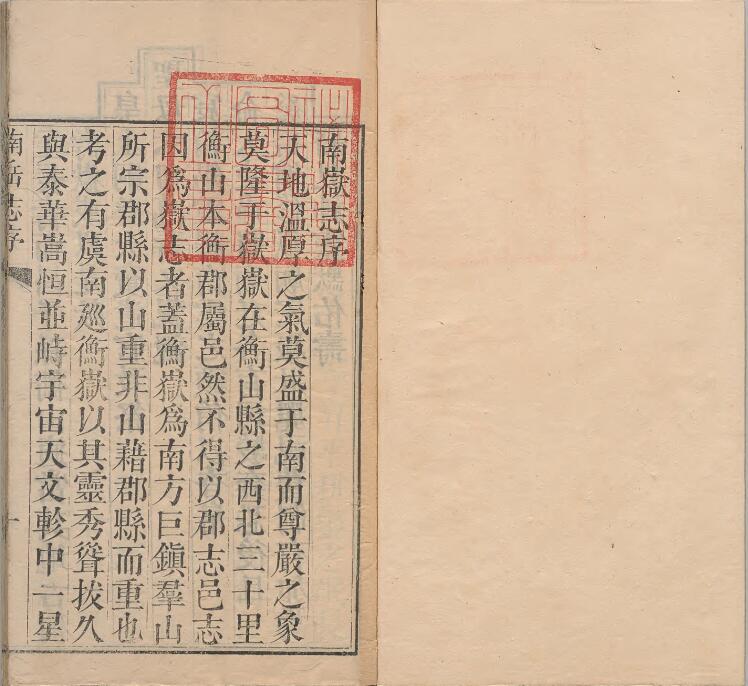 南嶽志序
天地溫厚之氣莫盛于南而尊嚴之象
莫隆于嶽嶽在衡山縣之西北三十里
衡山本衡郡屬邑然不得以郡志邑志
因爲嶽志者蓋衡嶽爲南方巨鎮羣山
所宗郡縣以山重非山藉郡縣而重也
考之有虞南廵衡嶽以其靈秀聳拔久
與泰華嵩恒並峙宇宙天文軫中一星
南岳志序
一